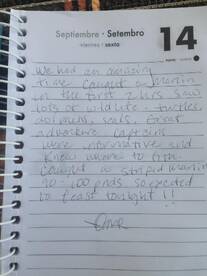 Septiembre • Setembro
viernes • sexta
14
We had an amazing
time caught a marlin
in the first 2 hrs saw
lots of wildlife - turtles,
dolphins, seals. Great
adventure captains
were informative and
knew where to fish.
caught a striped marlin
90-100 pnds. so excited
to feast tonight!!